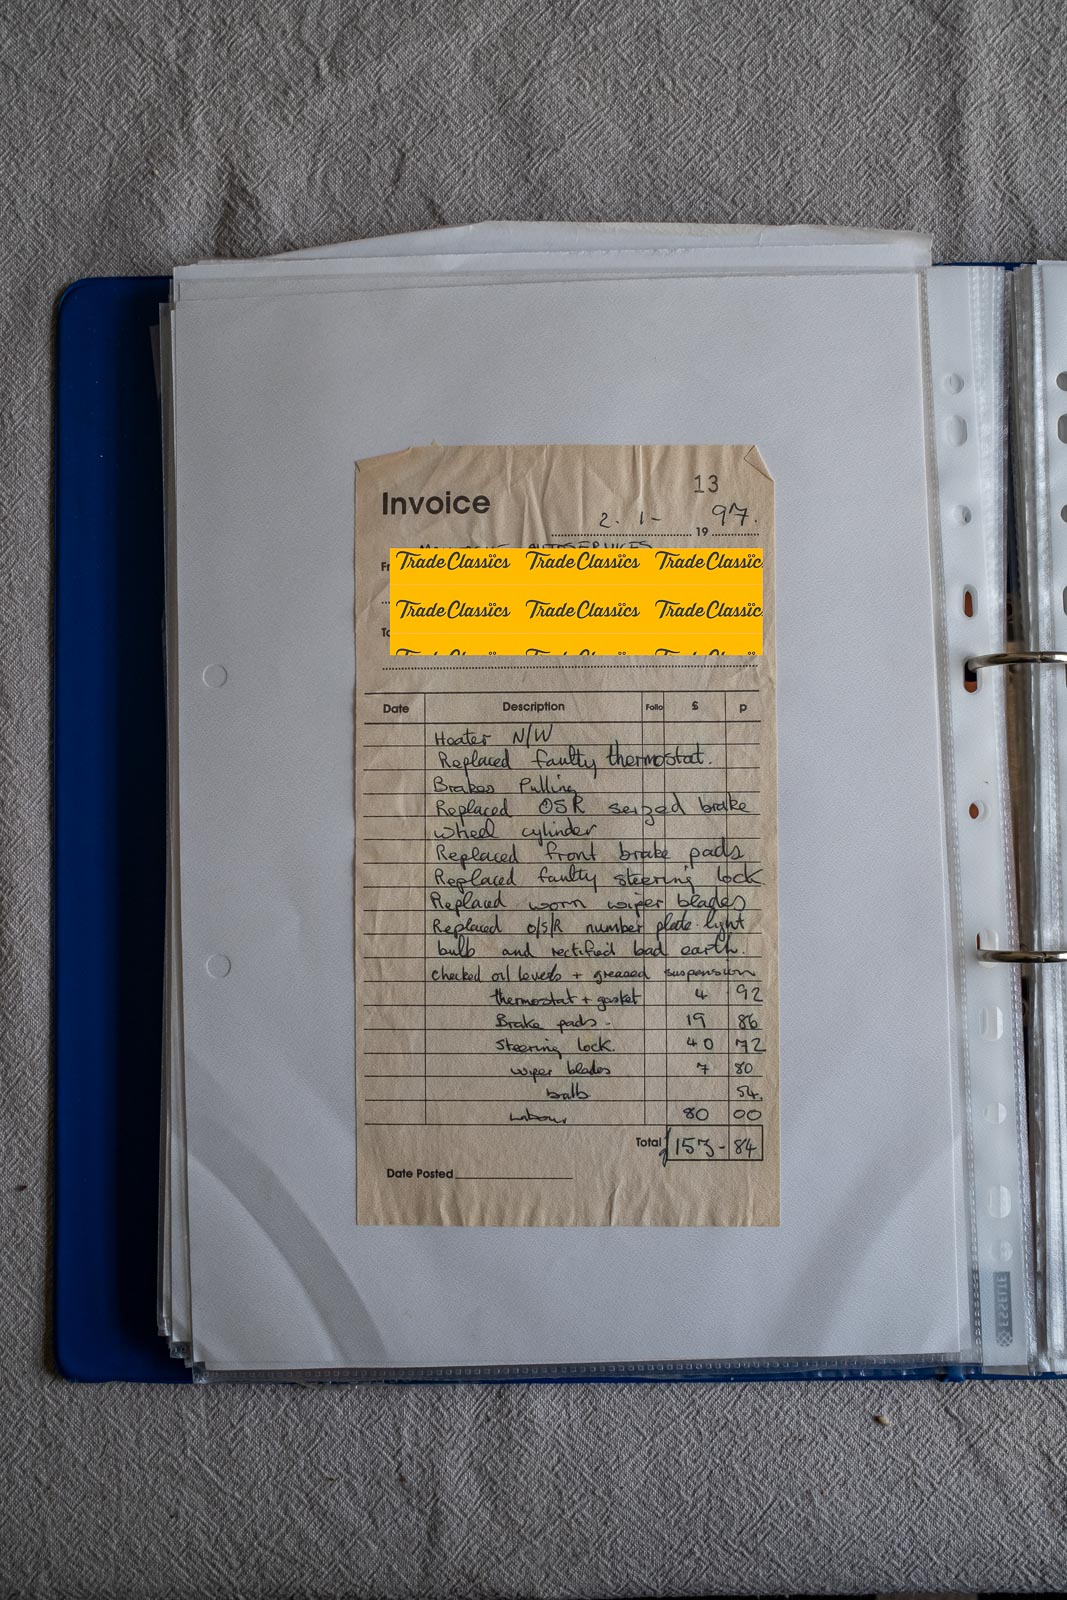 13
Invoice
2. 1- 19 97.
AUTOSERVICES
Trade Classics Trade Classics Trade Classic
Trade Classics Trade Classics Trade Classic
Date Description Folio £ p
Heater N/W
Replaced faulty thermostat.
Brakes Pulling
Replaced OSR seized brake
wheel cylinder
Replaced front brake pads
Replaced faulty steering lock
Replaced worn wiper blades
Replaced o/s/R number plate light
bulb and rectified bad earth.
checked oil levels + greased suspension
thermostat + gasket 4 92
Brake pads - 19 86
Steering lock. 40 72
wiper blades 7 80
bulb 54.
Labour 80 00
Total £153-84
Date Posted
ESSELTE